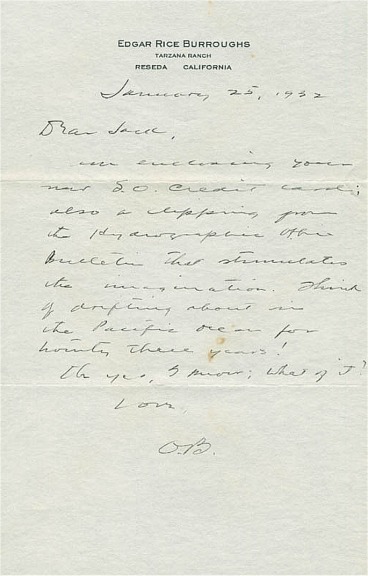 EDGAR RICE BURROUGHS
TARZANA RANCH
RESEDA CALIFORNIA
January 25, 1932
Dear Jack,
am enclosing your
new S.O. Credit card;
also a clipping from
the Hydrographic Office
Bulletin that stimulates
the imagination. Think
of drifting about in
the Pacific Ocean for
twenty three years!
Oh yes, I know; what of it?
Love,
O.B.